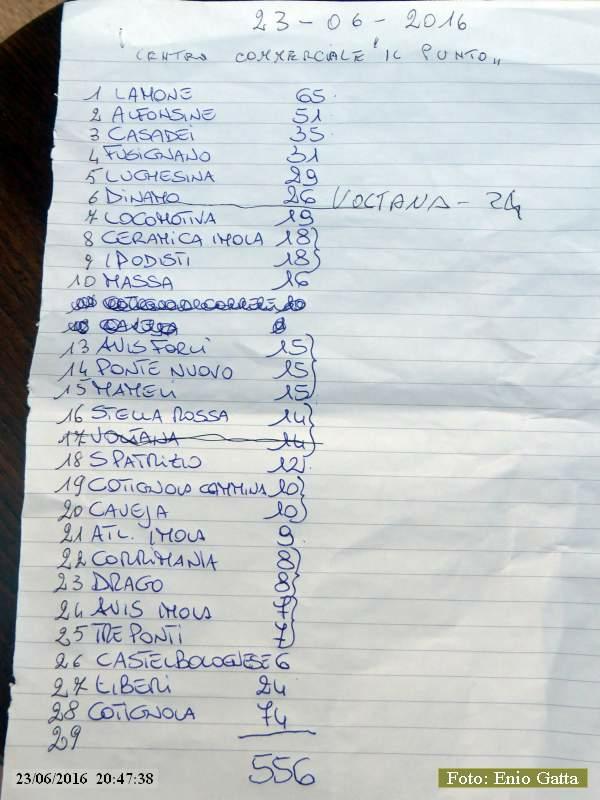 23-06-2016
CENTRO COMMERCIALE "IL PUNTO"
1 LAMONE 65
2 ALFONSINE 51
3 CASADEI 35
4 FUSIGNANO 31
5 LUGHESINA 29
6 DINAMO 26 VOLTANA - 24
7 LOCOMOTIVA 19
8 CERAMICA IMOLA 18
9 I PODISTI 18
10 MASSA 16
13 AVIS FORLI 15
14 PONTE NUOVO 15
15 MAMELI 15
16 STELLA ROSSA 14
17 VOLTANA 14
18 S PATRIZIO 12
19 COTIGNOLA CAMMINA 10
20 CAVEJA 10
21 ATL. IMOLA 9
22 CORRIMANIA 8
23 DRAGO 8
24 AVIS IMOLA 7
25 TRE PONTI 7
26 CASTELBOLOGNESE 6
27 LIBERI 24
28 COTIGNOLA 74
29
556
23/06/2016 20:47:38
Foto: Enio Gatta